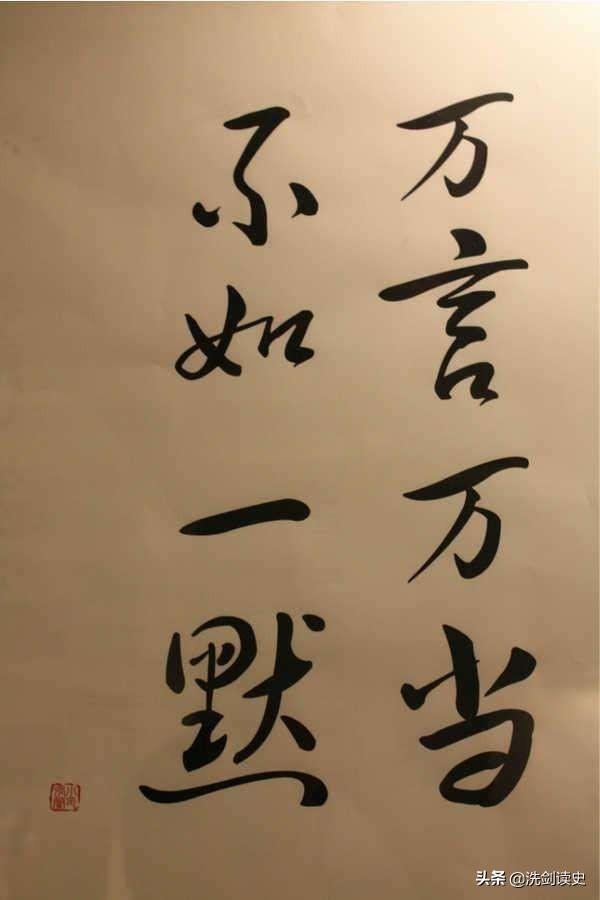 万言万当
不如一默
头条 @洗剑读史